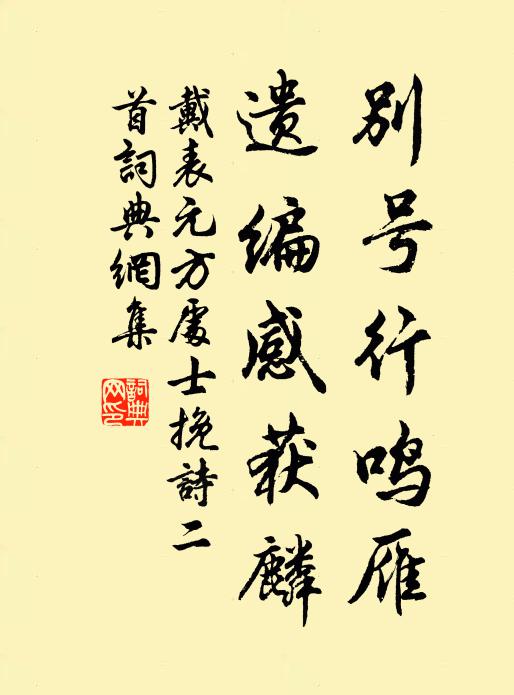 别号行鸣雁
遗编感获麟
戴表元方處士挽詩二
首詞典網集
詞典網印